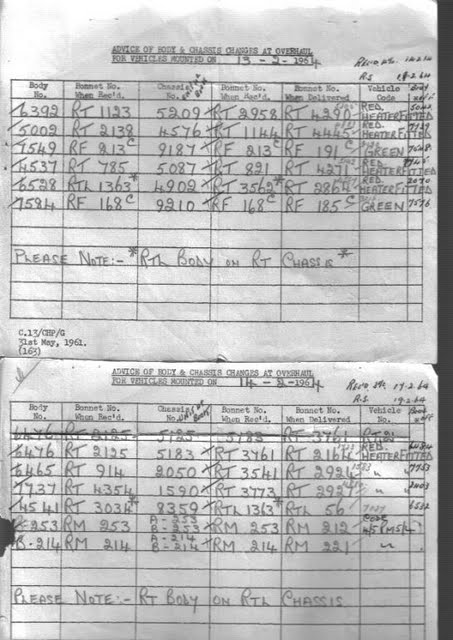 ADVICE OF BODY & CHASSIS CHANGES AT OVERHAUL
FOR VEHICLES MOUNTED ON 13-2-1964
R.S. 19.2.64
Body No. Bonnet No. When Rec'd. Chassis No. Bonnet No. When Rec'd. Bonnet No. When Delivered Vehicle Code
6392 RT 1123 5209 RT 2958 RT 4290 RED. HEATER FITTED
5002 RT 2138 4576 RT 1144 RT 4445 RED. HEATER FITTED
7549 RF 213C 9187 RF 213C RF 191C GREEN
4537 RT 785 5087 RT 821 RT 4271 RED. HEATER FITTED
6528 RTL 1363* 4902 RT 3562* RT 2864 RED. HEATER FITTED
7584 RF 168C 9210 RF 168C RF 185C GREEN 7576
PLEASE NOTE:- *RTL BODY ON RT CHASSIS*
C.13/CHP/G
31st May, 1961.
(163)
ADVICE OF BODY & CHASSIS CHANGES AT OVERHAUL
FOR VEHICLES MOUNTED ON 14-2-1964
R.S. 19.2.64
Body No. Bonnet No. When Rec'd. Chassis No. Bonnet No. When Rec'd. Bonnet No. When Delivered Vehicle No.
6476 RT 2125 5183
6476 RT 2125 5183 RT 3761 RT 2164 RED. HEATER FITTED
6465 RT 914 2050 RT 3541 RT 2924 " "
7737 RT 4354 1590 RT 3773 RT 2927 " "
4541 RT 3034* 8359 RTL 1363* RTL 56
B-253 RM 253 A-253 B-253 RM 253 RM 212
B-214 RM 214 A-214 B-214 RM 214 RM 221 "
PLEASE NOTE:- RT BODY ON RTL CHASSIS